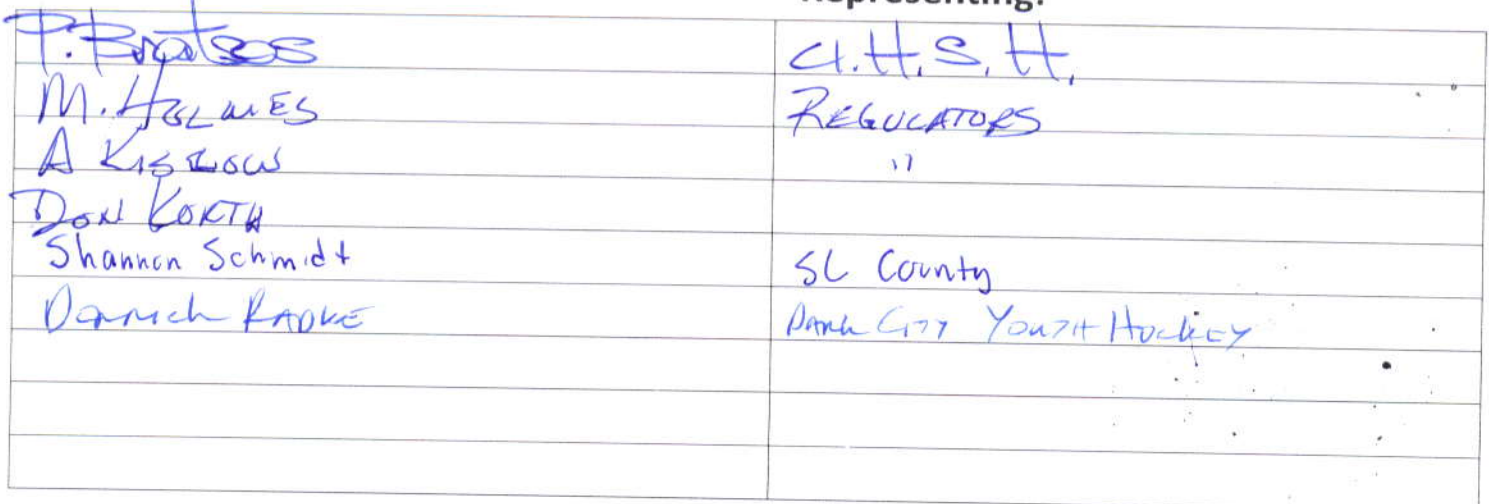 Representing:
P. Bratsos U.H.S.H.
M. HOLMES REGULATORS
A KISLOW "
DON KORTH
Shannon Schmidt SL County
Derrick RADKE PARK CITY YOUTH HOCKEY